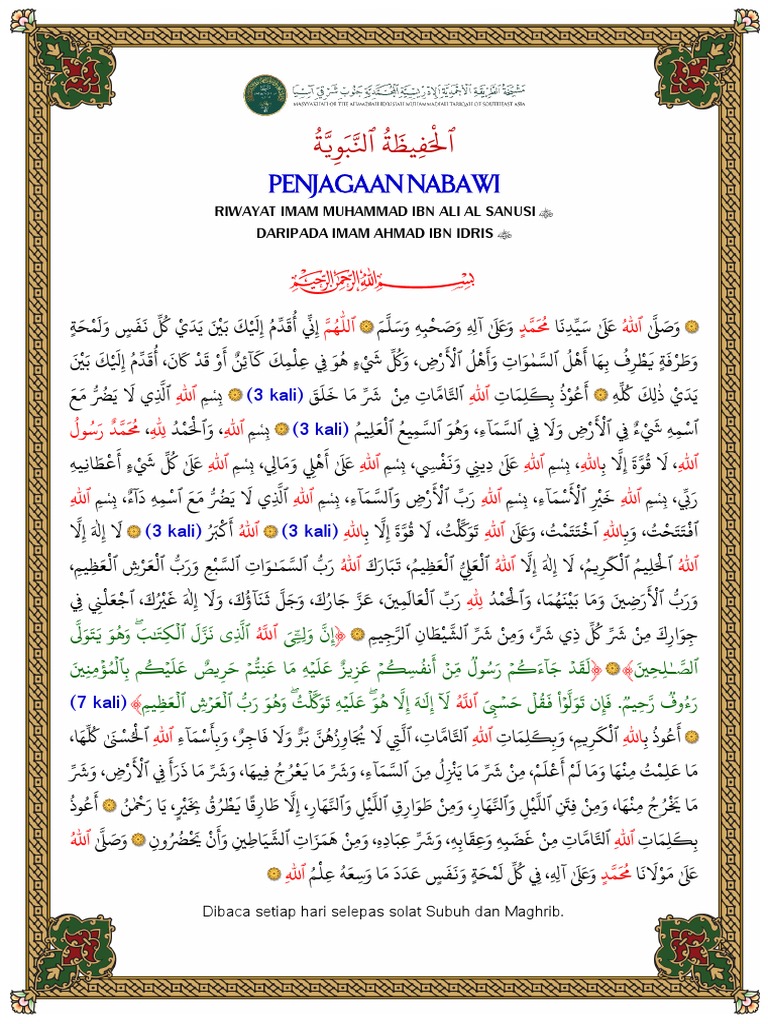 مشيخة الطريقة الأحمدية الإدريسية المحمدية جنوب شرقي آسيا
MASYYAKHAH OF THE AHMADIAH IDRISIAH MUHAMMADIAH TARIQAH OF SOUTHEAST ASIA
ٱلْحَفِيظَةُ ٱلنَّبَوِيَّةُ
PENJAGAAN NABAWI
RIWAYAT IMAM MUHAMMAD IBN ALI AL SANUSI
DARIPADA IMAM AHMAD IBN IDRIS
بِسْمِ ٱللهِ ٱلرَّحْمٰنِ ٱلرَّحِيْمِ
وَصَلَّى ٱللهُ عَلَىٰ سَيِّدِنَا مُحَمَّدٍ وَعَلَىٰ آلِهِ وَصَحْبِهِ وَسَلَّمَ ٱللَّهُمَّ إِنِّي أُقَدِّمُ إِلَيْكَ بَيْنَ يَدَيْ كُلِّ نَفَسٍ وَلَمْحَةٍ
وَطَرْفَةٍ يَطْرِفُ بِهَا أَهْلُ ٱلسَّمَٰوَاتِ وَأَهْلُ ٱلْأَرْضِ، وَكُلِّ شَيْءٍ هُوَ فِي عِلْمِكَ كَآئِنٌ أَوْ قَدْ كَانَ، أُقَدِّمُ إِلَيْكَ بَيْنَ
يَدَيْ ذَٰلِكَ كُلِّهِ أَعُوْذُ بِكَلِمَاتِ ٱللهِ ٱلتَّامَّاتِ مِنْ شَرِّ مَا خَلَقَ (3 kali) بِسْمِ ٱللهِ ٱلَّذِي لَا يَضُرُّ مَعَ
اسْمِهِ شَيْءٌ فِي ٱلْأَرْضِ وَلَا فِي ٱلسَّمَآءِ، وَهُوَ ٱلسَّمِيعُ ٱلْعَلِيمُ (3 kali) بِسْمِ ٱللهِ، وَٱلْحَمْدُ لِلهِ، مُحَمَّدٌ رَسُولُ
ٱللهِ، لَا قُوَّةَ إِلَّا بِٱللهِ، بِسْمِ ٱللهِ عَلَىٰ دِينِي وَنَفْسِي، بِسْمِ ٱللهِ عَلَىٰ أَهْلِي وَمَالِي، بِسْمِ ٱللهِ عَلَىٰ كُلِّ شَيْءٍ أَعْطَانِيهِ
رَبِّي، بِسْمِ ٱللهِ خَيْرِ ٱلْأَسْمَآءِ، بِسْمِ ٱللهِ رَبِّ ٱلْأَرْضِ وَٱلسَّمَآءِ، بِسْمِ ٱللهِ ٱلَّذِي لَا يَضُرُّ مَعَ اسْمِهِ دَآءٌ، بِسْمِ ٱللهِ
ٱفْتَتَحْتُ، وَبِٱللهِ ٱخْتَتَمْتُ، وَعَلَى ٱللهِ تَوَكَّلْتُ، لَا قُوَّةَ إِلَّا بِٱللهِ (3 kali) ٱللهُ أَكْبَرُ (3 kali) لَا إِلٰهَ إِلَّا
ٱللهُ ٱلْحَلِيمُ ٱلْكَرِيمُ، لَا إِلٰهَ إِلَّا ٱللهُ ٱلْعَلِيُّ ٱلْعَظِيمُ، تَبَارَكَ ٱللهُ رَبُّ ٱلسَّمَٰوَاتِ ٱلسَّبْعِ وَرَبُّ ٱلْعَرْشِ ٱلْعَظِيمِ،
وَرَبُّ ٱلْأَرَضِينَ وَمَا بَيْنَهُمَا، وَٱلْحَمْدُ لِلهِ رَبِّ ٱلْعَالَمِينَ، عَزَّ جَارُكَ، وَجَلَّ ثَنَاؤُكَ، وَلَا إِلٰهَ غَيْرُكَ، ٱجْعَلْنِي فِي
جِوَارِكَ مِنْ شَرِّ كُلِّ ذِي شَرٍّ، وَمِنْ شَرِّ ٱلشَّيْطَانِ ٱلرَّجِيمِ ﴿إِنَّ وَلِـِّۧيَ ٱللَّهُ ٱلَّذِى نَزَّلَ ٱلْكِتَٰبَ ۖ وَهُوَ يَتَوَلَّى
ٱلصَّٰلِحِينَ﴾ ﴿لَقَدْ جَآءَكُمْ رَسُولٌ مِّنْ أَنفُسِكُمْ عَزِيزٌ عَلَيْهِ مَا عَنِتُّمْ حَرِيصٌ عَلَيْكُم بِٱلْمُؤْمِنِينَ
رَءُوفٌ رَّحِيمٌ. فَإِن تَوَلَّوْا۟ فَقُلْ حَسْبِىَ ٱللَّهُ لَآ إِلَٰهَ إِلَّا هُوَ ۖ عَلَيْهِ تَوَكَّلْتُ ۖ وَهُوَ رَبُّ ٱلْعَرْشِ ٱلْعَظِيمِ﴾ (7 kali)
أَعُوذُ بِٱللهِ ٱلْكَرِيمِ، وَبِكَلِمَاتِ ٱللهِ ٱلتَّامَّاتِ، ٱلَّتِي لَا يُجَاوِزُهُنَّ بَرٌّ وَلَا فَاجِرٌ، وَبِأَسْمَآءِ ٱللهِ ٱلْحُسْنَىٰ كُلِّهَا،
مَا عَلِمْتُ مِنْهَا وَمَا لَمْ أَعْلَمْ، مِنْ شَرِّ مَا يَنْزِلُ مِنَ ٱلسَّمَآءِ، وَشَرِّ مَا يَعْرُجُ فِيهَا، وَشَرِّ مَا ذَرَأَ فِي ٱلْأَرْضِ، وَشَرِّ
مَا يَخْرُجُ مِنْهَا، وَمِنْ فِتَنِ ٱللَّيْلِ وَٱلنَّهَارِ، وَمِنْ طَوَارِقِ ٱللَّيْلِ وَٱلنَّهَارِ، إِلَّا طَارِقًا يَطْرُقُ بِخَيْرٍ، يَا رَحْمٰنُ أَعُوذُ
بِكَلِمَاتِ ٱللهِ ٱلتَّامَّاتِ مِنْ غَضَبِهِ وَعِقَابِهِ، وَشَرِّ عِبَادِهِ، وَمِنْ هَمَزَاتِ ٱلشَّيَاطِينِ وَأَنْ يَحْضُرُونِ وَصَلَّى ٱللهُ
عَلَىٰ مَوْلَانَا مُحَمَّدٍ وَعَلَىٰ آلِهِ، فِي كُلِّ لَمْحَةٍ وَنَفَسٍ عَدَدَ مَا وَسِعَهُ عِلْمُ ٱللهِ
Dibaca setiap hari selepas solat Subuh dan Maghrib.